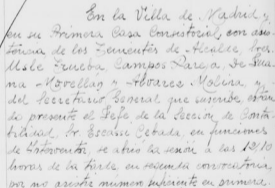 En la Villa de Madrid y
en su Primera Casa Consistorial, con asis-
tencia de los Tenientes de Alcalde, Sres.
Uslé Trueba, Campos Pareja, De Juana
na - Movellán y Alvarez Molina, y
del Secretario General que suscribe, estan-
do presente el Jefe de la Sección de Conta-
bilidad, Sr. Escaso Cebada, en funciones
de Interventor, se abrió la sesión a las 13/10
horas de la tarde en segunda convocatoria,
por no asistir número suficiente en primera